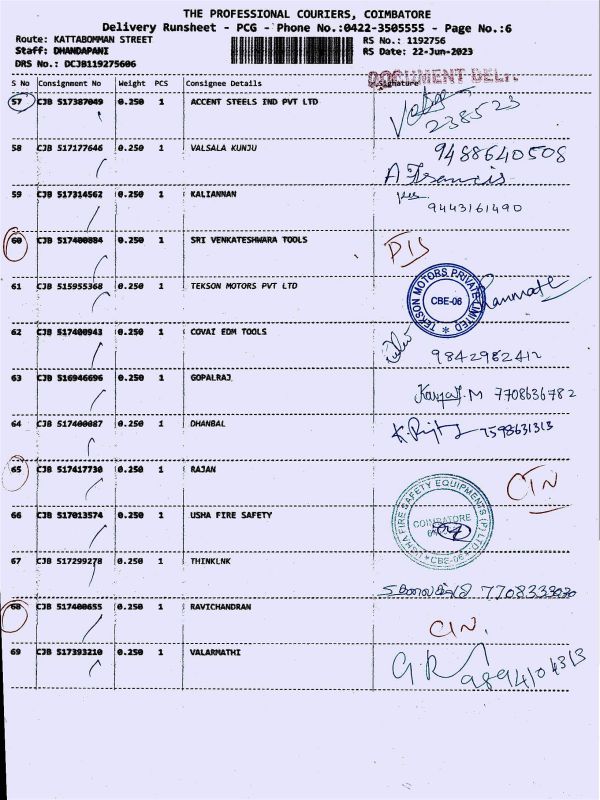 THE PROFESSIONAL COURIERS, COIMBATORE
Delivery Runsheet - PCG - Phone No.:0422-3505555 - Page No.:6
Route: KATTABOMMAN STREET RS No.: 1192756
Staff: DHANDAPANI RS Date: 22-Jun-2023
DRS No.: DCJB119275606
DOCUMENT DELY.
S No Consignment No Weight PCS Consignee Details Signature
57 CJB 517387049 0.250 1 ACCENT STEELS IND PVT LTD
238523
58 CJB 517177646 0.250 1 VALSALA KUNJU 9488640508
A Francis
59 CJB 517314562 0.250 1 KALIANNAN
9443161490
60 CJB 517400884 0.250 1 SRI VENKATESHWARA TOOLS DIS
61 CJB 515955368 0.250 1 TEKSON MOTORS PVT LTD
TEKSON MOTORS PRIVATE LIMITED CBE-06
62 CJB 517400943 0.250 1 COVAI EDM TOOLS
9842982412
63 CJB 516946696 0.250 1 GOPALRAJ
M 7708636782
64 CJB 517400087 0.250 1 DHANBAL 7598631313
65 CJB 517417730 0.250 1 RAJAN CIN
66 CJB 517013574 0.250 1 USHA FIRE SAFETY
USHA FIRE SAFETY EQUIPMENTS (P) LTD. COIMBATORE CBE-06
67 CJB 517299278 0.250 1 THINKLNK
68 CJB 517400655 0.250 1 RAVICHANDRAN CIN.
69 CJB 517393210 0.250 1 VALARMATHI
G.R 9894104313